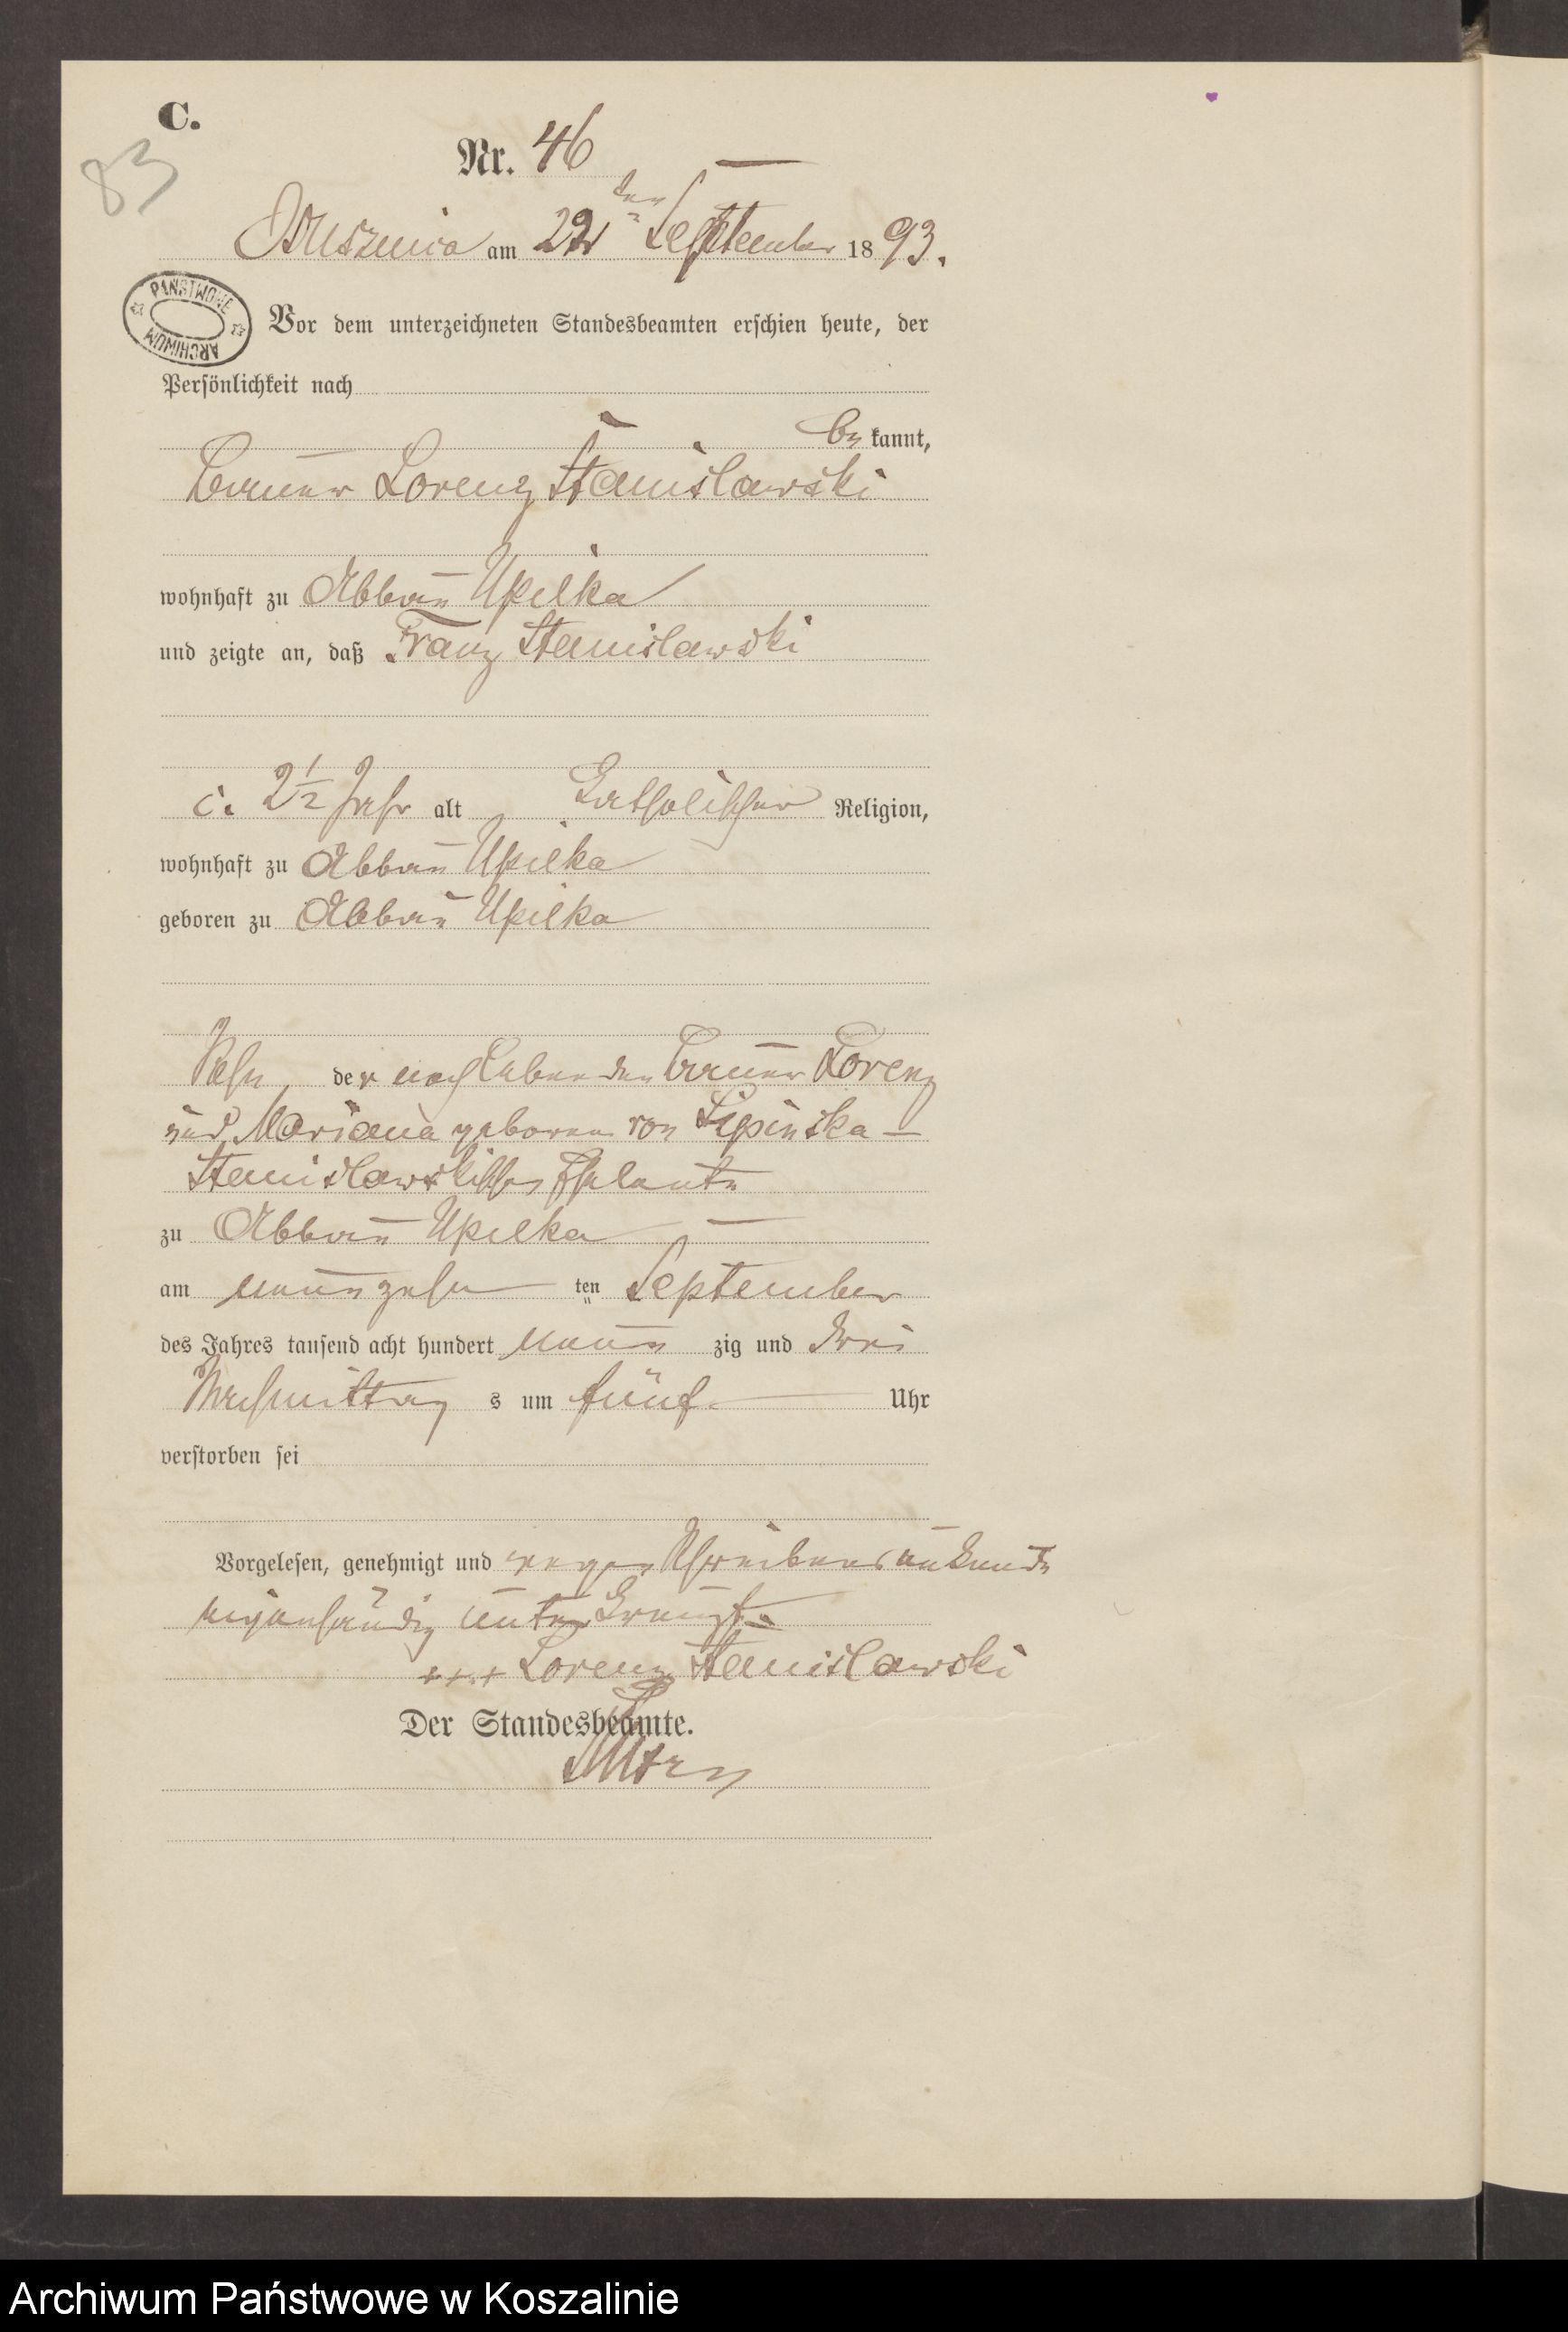 C.
83
Nr. 46
Osusznica am 22ten September 1893.
PAŃSTWOWE ARCHIWUM
Vor dem unterzeichneten Standesbeamten erschien heute, der
Persönlichkeit nach
be kannt,
Bauer Lorenz Stanislawski
wohnhaft zu Abbau Upilka
und zeigte an, daß Franz Stanislawski
c. 2½ Jahr alt, katholischer Religion,
wohnhaft zu Abbau Upilka
geboren zu Abbau Upilka
Sohn der noch lebenden Bauer Lorenz
und Mariana geborene von Lipinska
Stanislawskischen Eheleute
zu Abbau Upilka
am neunzehn ten September
des Jahres tausend acht hundert neun zig und drei
Nachmittag s um fünf Uhr
verstorben sei
Vorgelesen, genehmigt und wegen Schreibensunkunde
eigenhändig unterkreuzt.
+++ Lorenz Stanislawski
Der Standesbeamte.
Archiwum Państwowe w Koszalinie